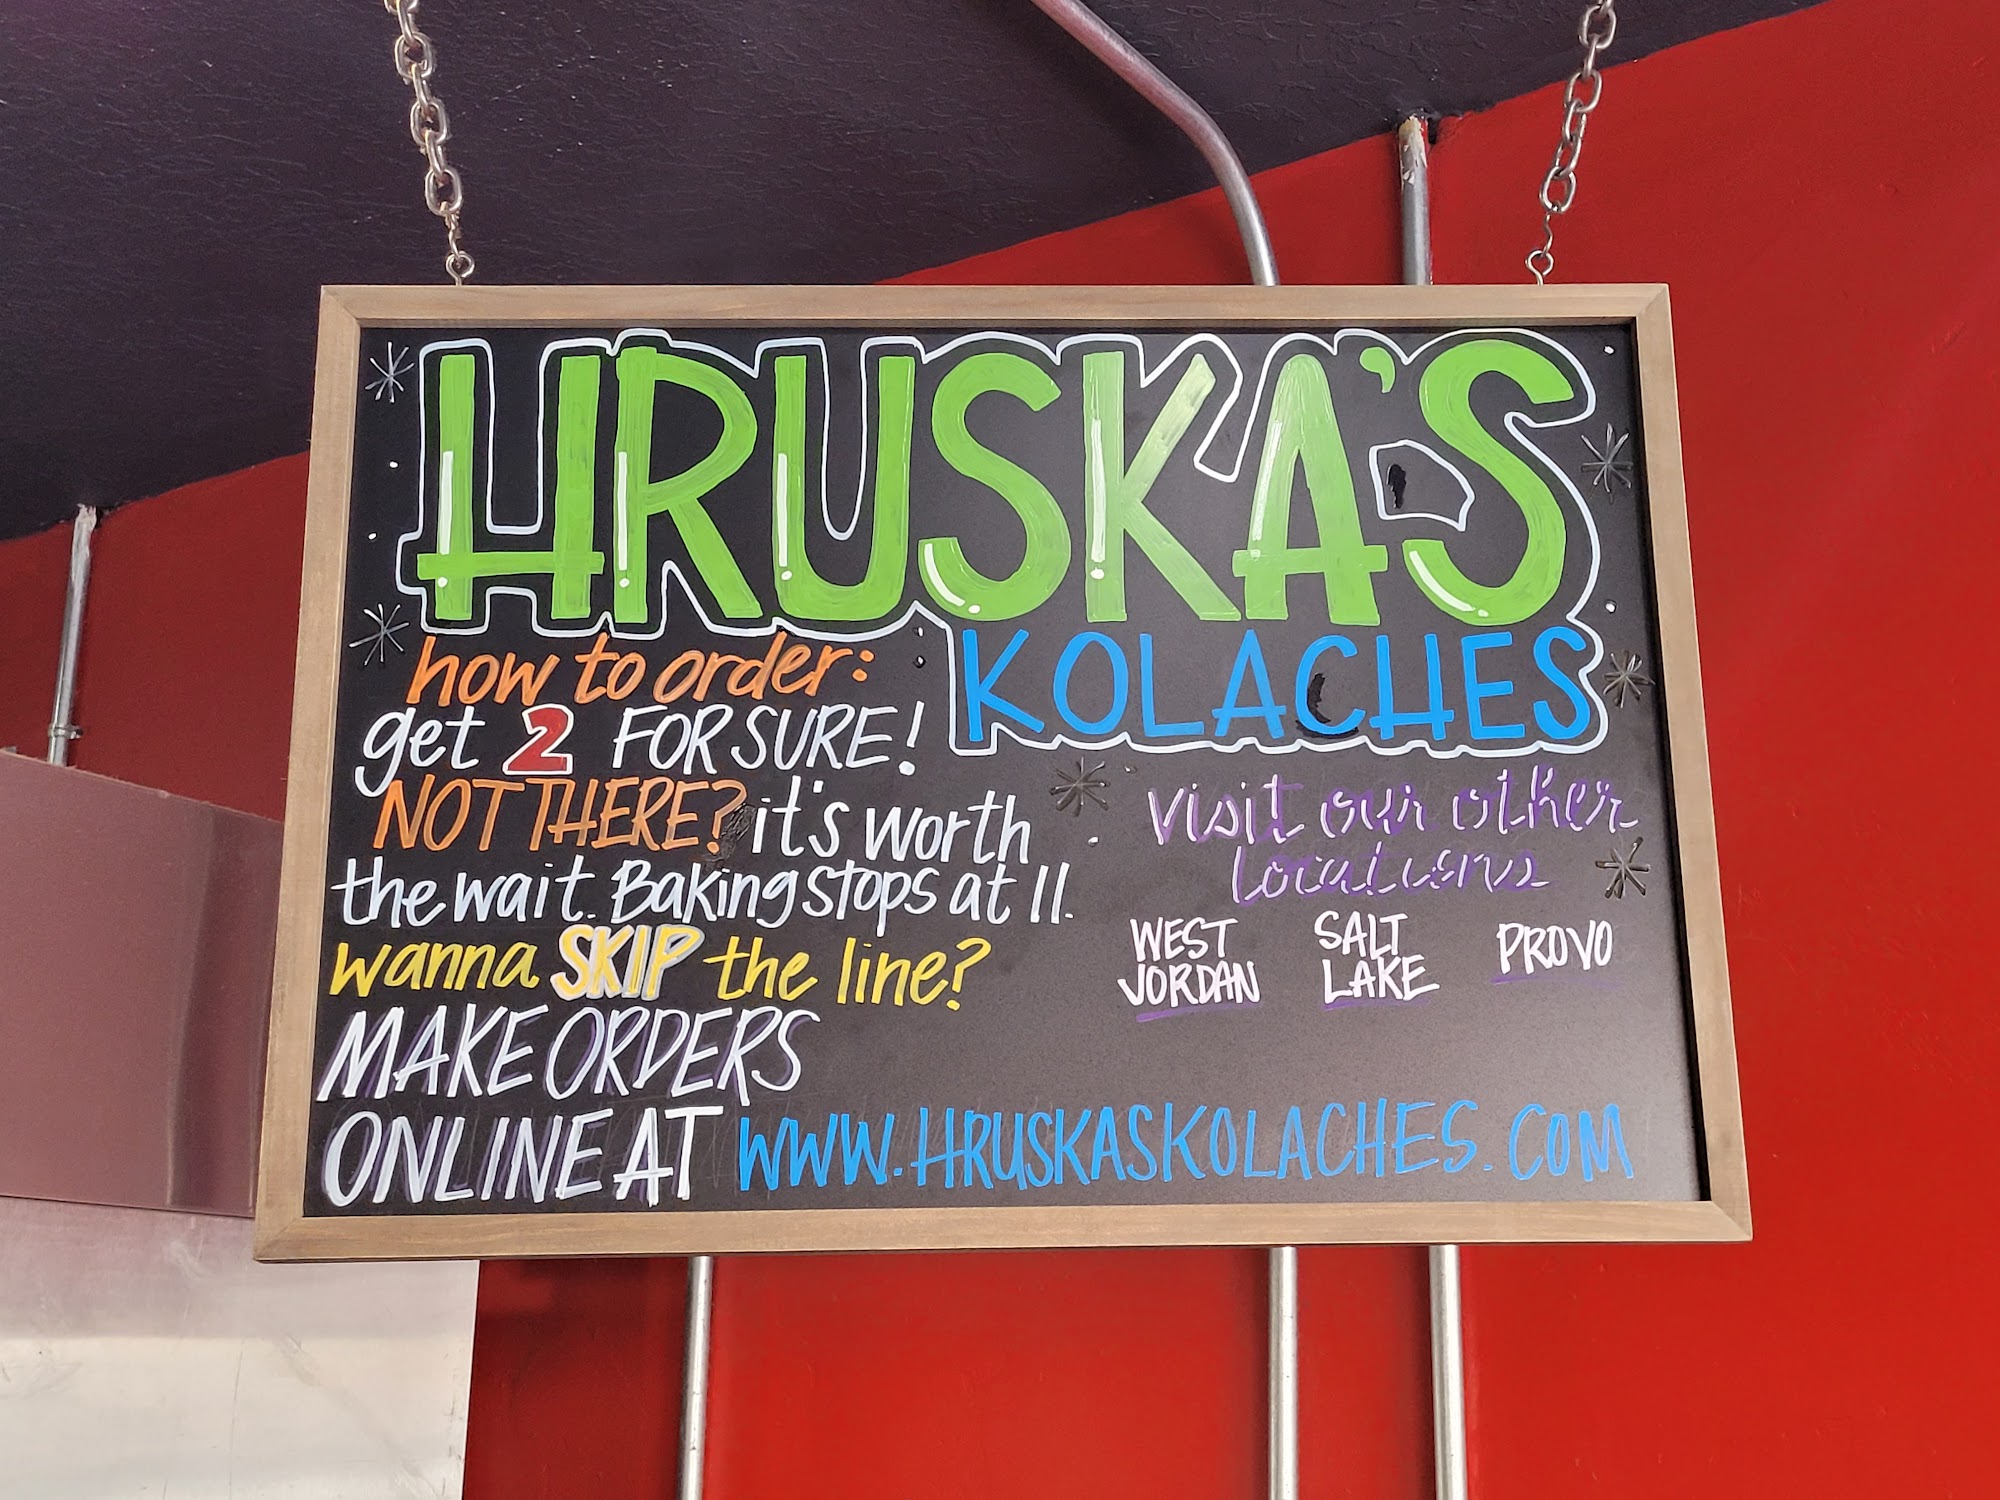 HRUSKA'S
KOLACHES
how to order:
get 2 FOR SURE!
NOT THERE? it's worth
the wait. Baking stops at 11.
wanna SKIP the line?
MAKE ORDERS
ONLINE AT WWW.HRUSKASKOLACHES.COM
visit our other
locations
WEST
JORDAN
SALT
LAKE
PROVO